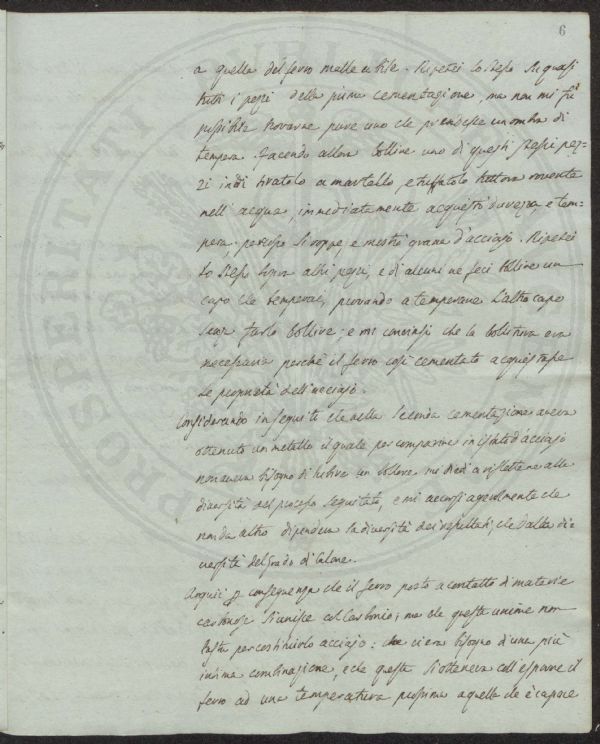 6
a quella del ferro malleabile. Ripetei lo stesso su quasi
tutti i pezzi della prima cementazione, ma non mi fu
possibile trovarne pure uno che prendesse un ombra di
tempera. Facendo allora bollire uno di questi stessi pez-
zi indi tiratolo a martello, e tuffatolo tuttora rovente
nell'acqua, immediatamente acquistò durezza, e tem-
pera; percosso si roppe, e mostrò grana d'acciajo. Ripetei
lo stesso sopra altri pezzi, e di alcuni ne feci bollire un
capo che temperai, provando a temperare l'altro capo
senza farlo bollire; e mi convinsi che la bollitura era
necessaria perchè il ferro così cementato acquistasse
le proprietà dell'acciajo.
Considerando in seguito che nella seconda cementazione aveva
ottenuto un metallo il quale per comparire in istato d'acciajo
non aveva bisogno di subire un bollore mi diedi a riflettere alla
diversità del processo seguitato, e mi accorsi agevolmente che
non da altro dipendeva la diversità dei resultati, che dalla di-
versità del grado di calore.
conseguenza che il ferro posto a contatto di materie
carbonose si unisce col carbonio; ma che questa unione non
basta per costituirlo acciajo: che vi era bisogno d'una più
intima combinazione, e che questa si otteneva coll'esporre il
ferro ad una temperatura prossima a quella che è capace
PROSPERITATI